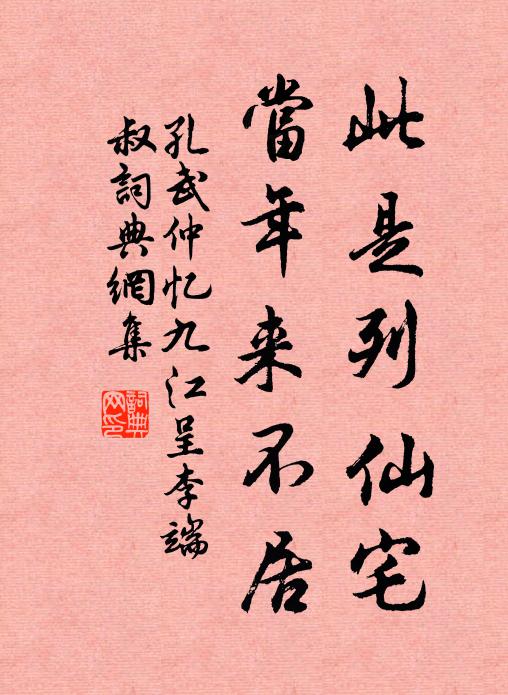 此是列仙宅
當年来不居
孔武仲忆九江呈李端
叔詞典網集
詞典
网印